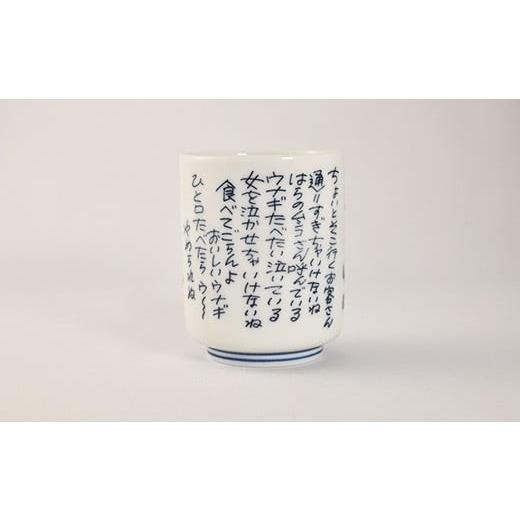 ちょいとそこ行くお客さん
通りすぎちゃいけないね
はちの子さん呼んでいる
ウナギたべたい泣いている
女を泣かせちゃいけないね
食べてごらんよ
おいしいウナギ
ひと口たべたらウ〜〜
やめられぬ